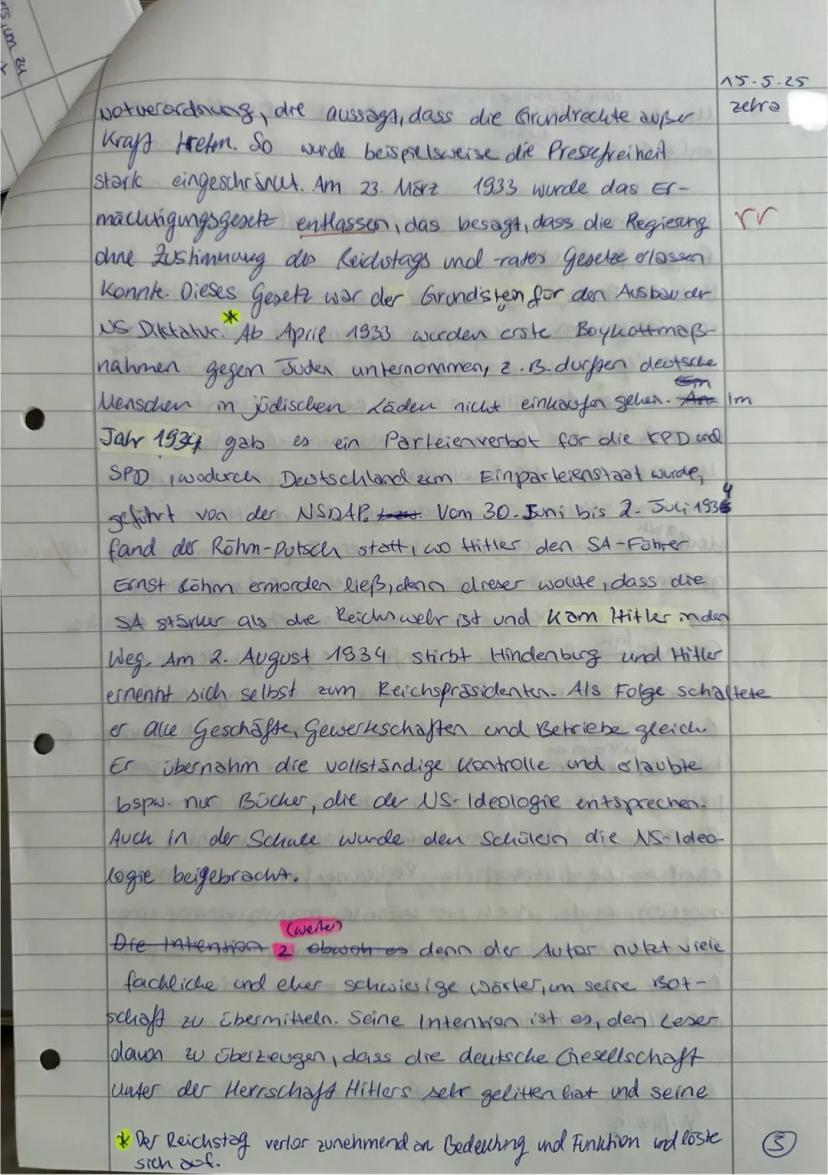 15.5.25
zebra
Notverordnung, die aussagt, dass die Grundrechte außer
Kraft treten. So wurde beispielsweise die Pressefreiheit
stark eingeschränkt. Am 23. März 1933 wurde das Er-
mächtigungsgesetz entlassen, das besagt, dass die Regierung rr
ohne Zustimmung des Reichstags und -rates Gesetze erlassen
konnte. Dieses Gesetz war der Grundstein für den Ausbau der
NS Diktatur. * Ab April 1933 wurden erste Boykottmaß-
nahmen gegen Juden unternommen, z.B. durften deutsche
Menschen in jüdischen Läden nicht einkaufen gehen. Im
Jahr 1934 gab es ein Parteienverbot für die KPD und
SPD, wodurch Deutschland zum Einparteienstaat wurde,
geführt von der NSDAP. Vom 30. Juni bis 2. Juli 1934
fand der Röhm-Putsch statt, wo Hitler den SA-Führer
Ernst Röhm ermorden ließ, denn dieser wollte, dass die
SA stärker als die Reichswehr ist und kam Hitler in den
Weg. Am 2. August 1934 stirbt Hindenburg und Hitler
ernennt sich selbst zum Reichspräsidenten. Als Folge schaltete
er alle Geschäfte, Gewerkschaften und Betriebe gleich.
Er übernahm die vollständige Kontrolle und erlaubte
bspw. nur Bücher, die der NS-Ideologie entsprechen.
Auch in der Schule wurde den Schülern die NS-Ideo-
logie beigebracht.
(weiter)
Die Intention 2 obwohl es denn der Autor nutzt viele
fachliche und eher schwierige Wörter, um seine Bot-
schaft zu übermitteln. Seine Intention ist es, den Leser
davon zu überzeugen, dass die deutsche Gesellschaft
unter der Herrschaft Hitlers sehr gelitten hat und seine
* Der Reichstag verlor zunehmend an Bedeutung und Funktion und löste
sich auf.
3